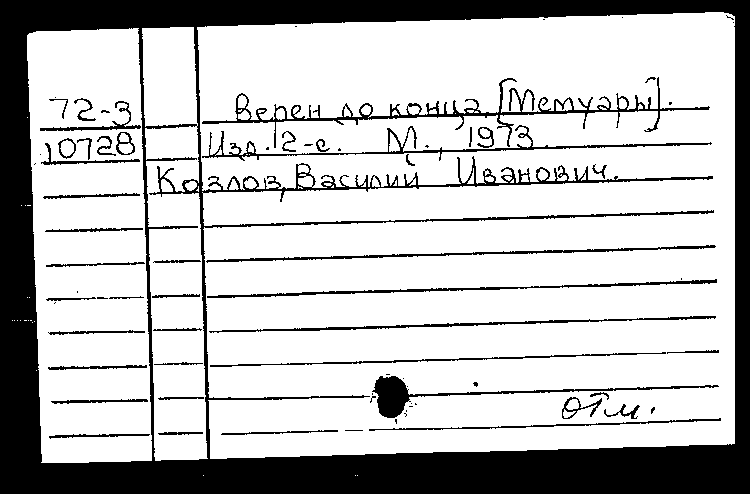 72-3 Верен до конца. [Мемуары].
10728 Изд. 2-е. М., 1973.
Козлов, Василий Иванович.
отм.